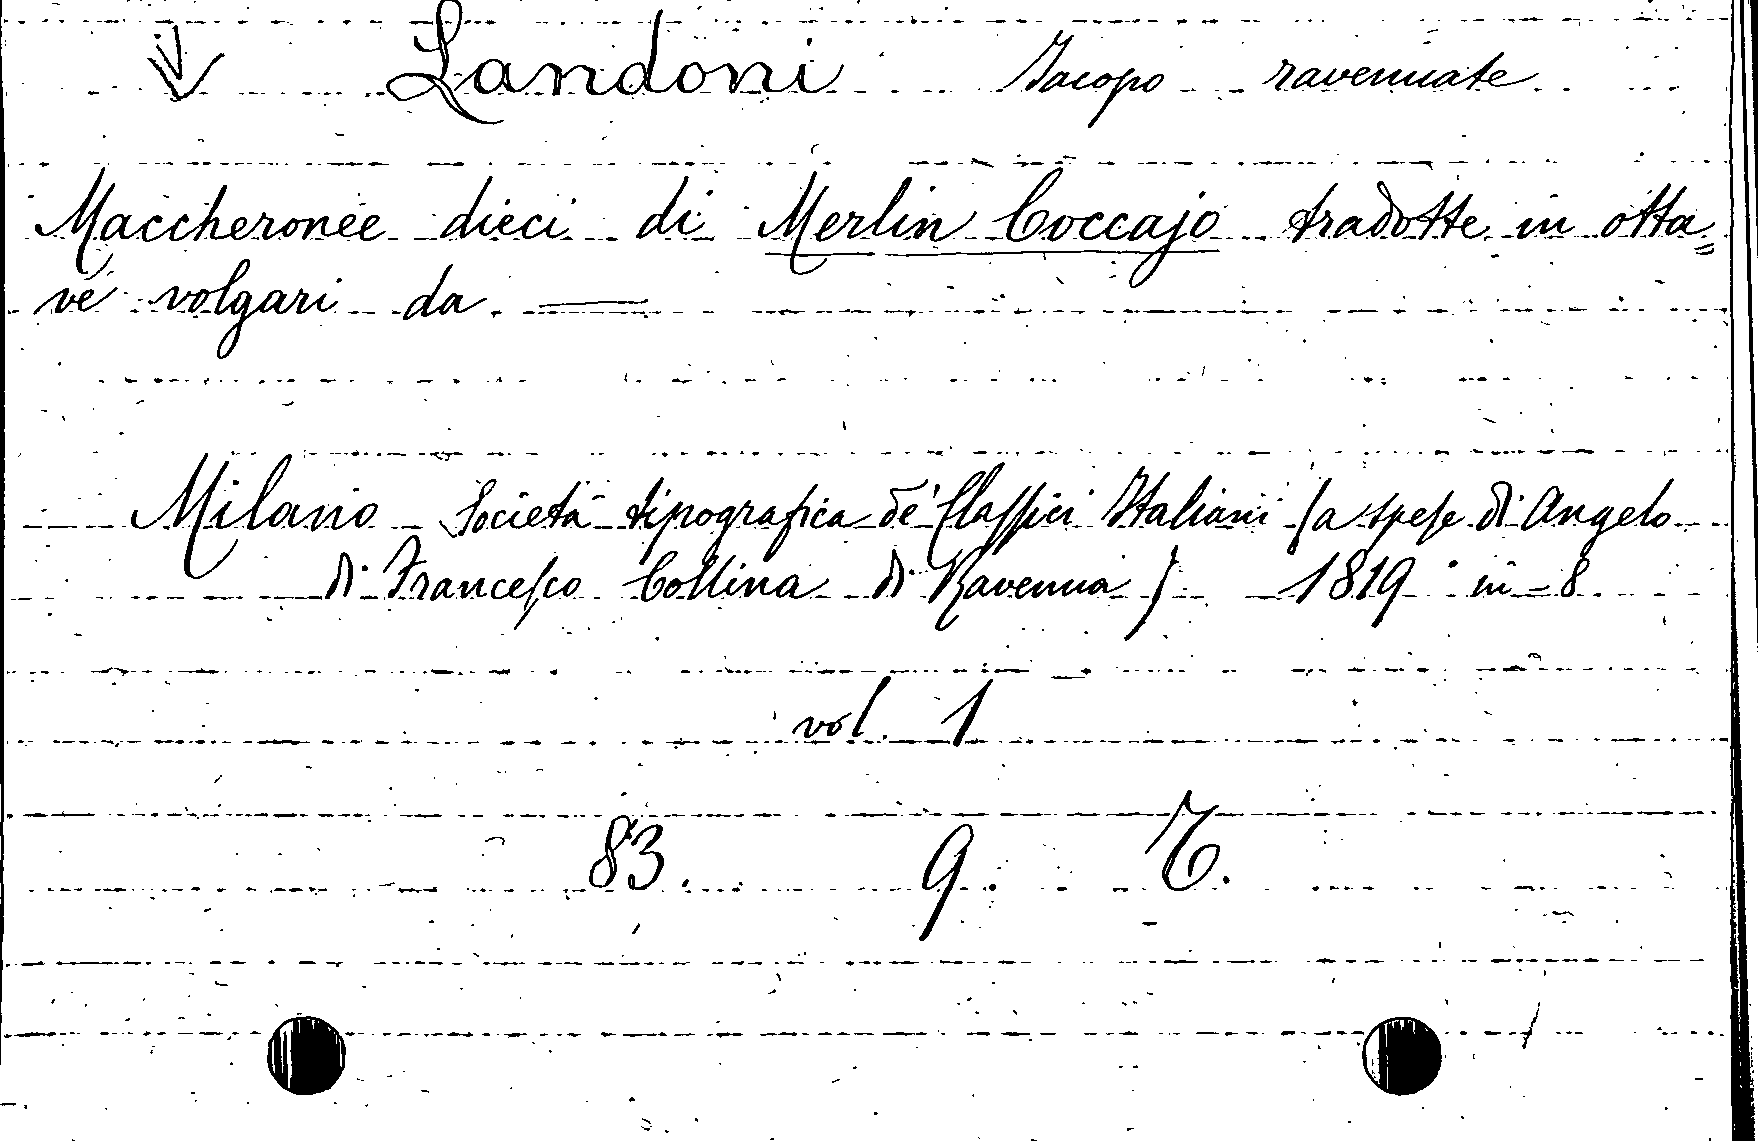 Landoni Jacopo ravennate
Maccheronee dieci di Merlin Coccajo tradotte in otta=
ve volgari da ——
Milano Società tipografica de' Classici Italiani (a spese di Angelo
di Francesco Collina di Ravenna) 1819 in-8
vol. 1
83. 9. T.